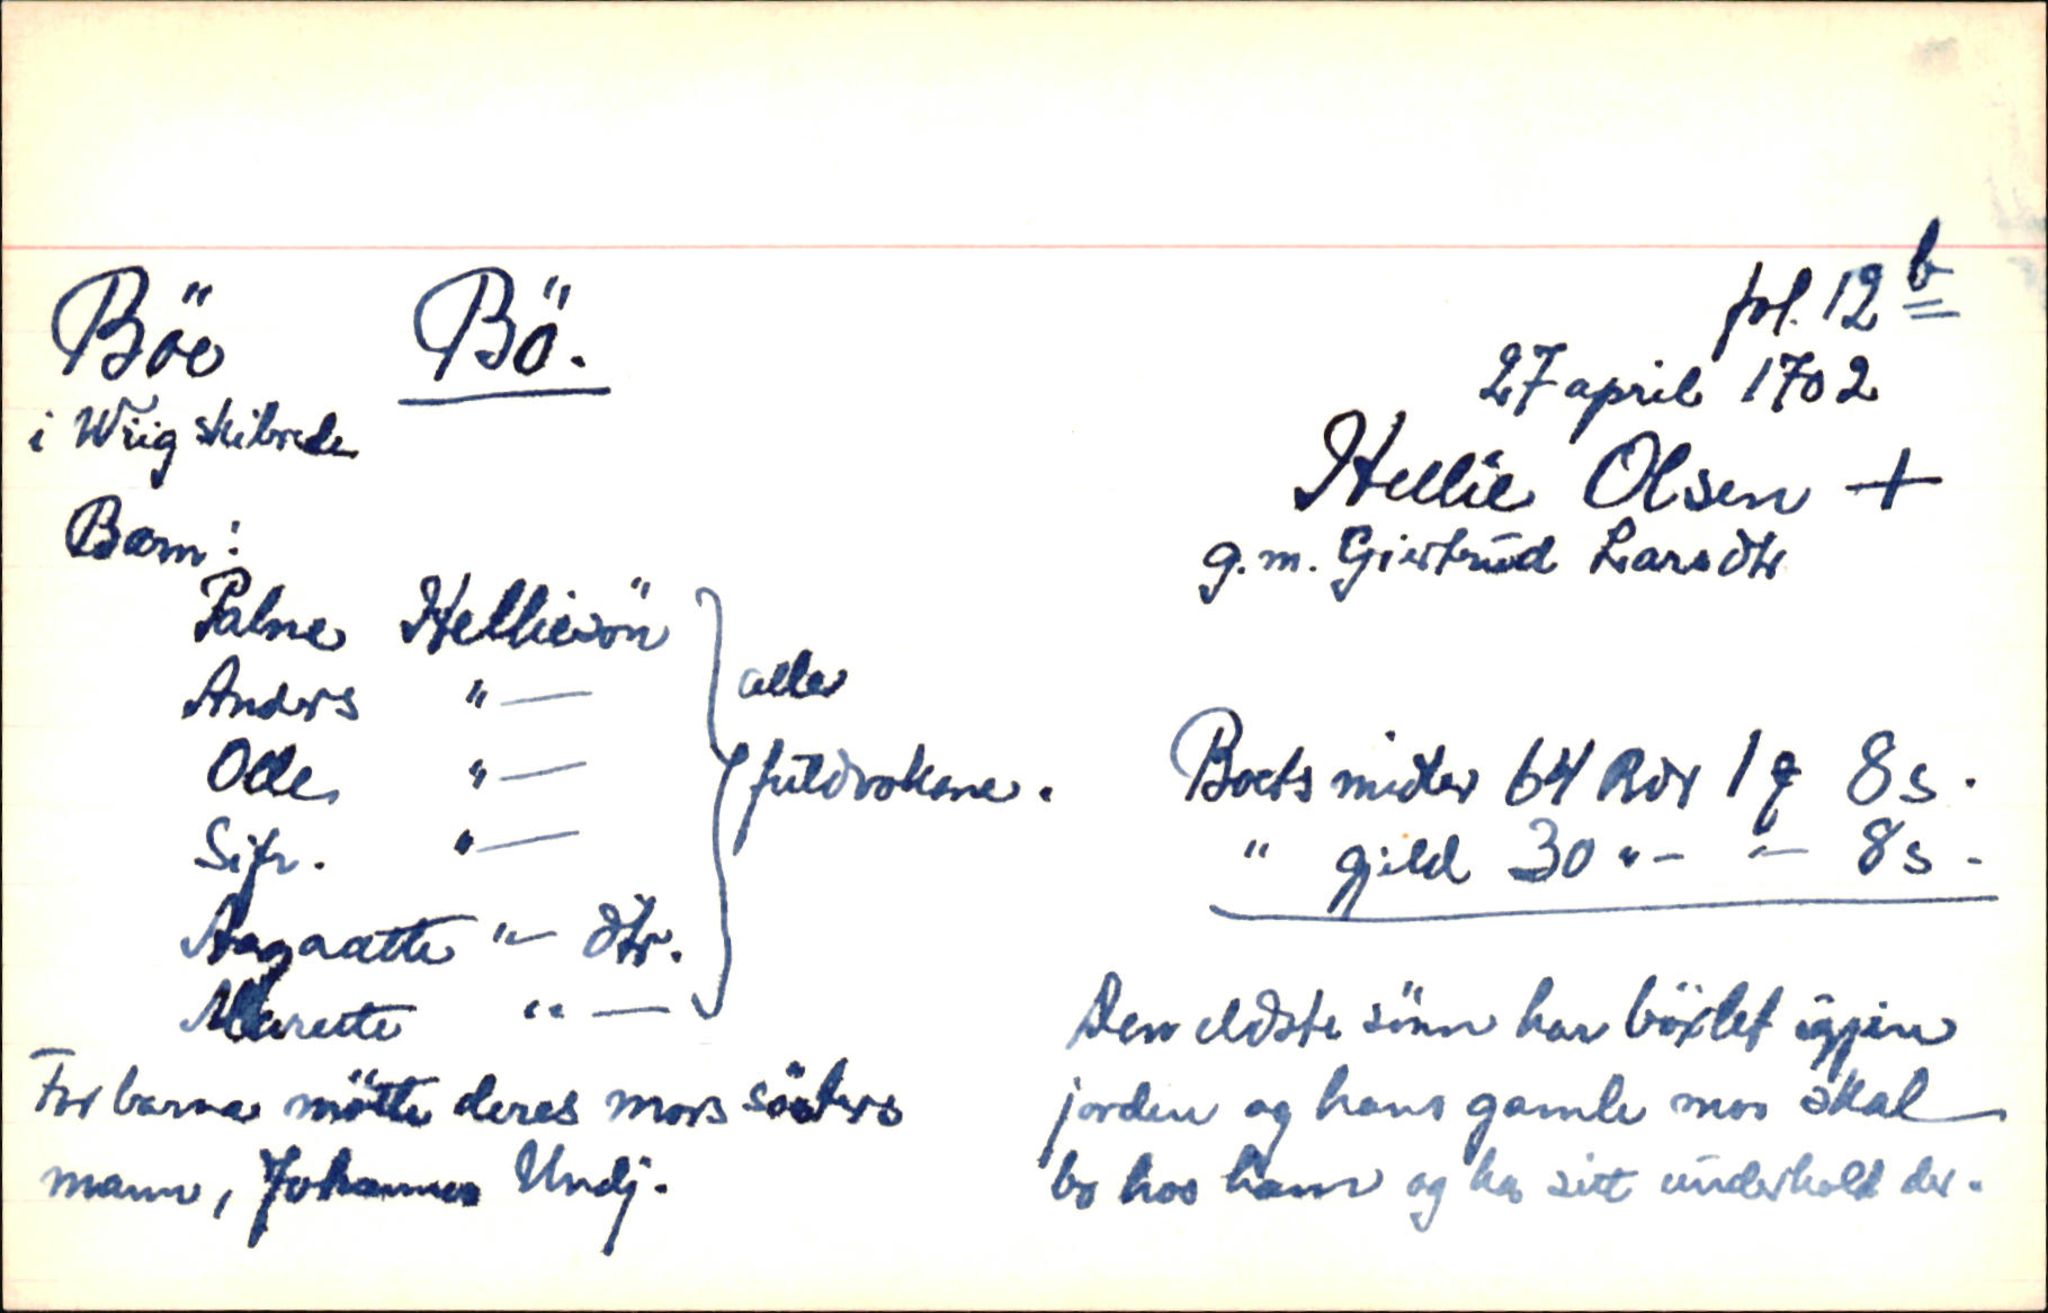 Böe Bö.
i Wiig skibrede
fol. 12 b
27 april 1702
Hellie Olsen +
g.m. Giertrud Larsdtr
Barn:
Palne Helliesön
Anders " —
Olle " —
Sifr. " —
Aagaatte " — dtr.
Marete " —
alle
fuldvoksne.
For barna mötte deres mors sösters
mann, Johannes Undj.
Boets midler 64 Rdr 1 ꝗ 8 s.
" gjeld 30 " — " — 8 s -
Den eldste sönn har böxlet igjen
jorden og hans gamle mor skal
bo hos ham og ha sitt underhold der.